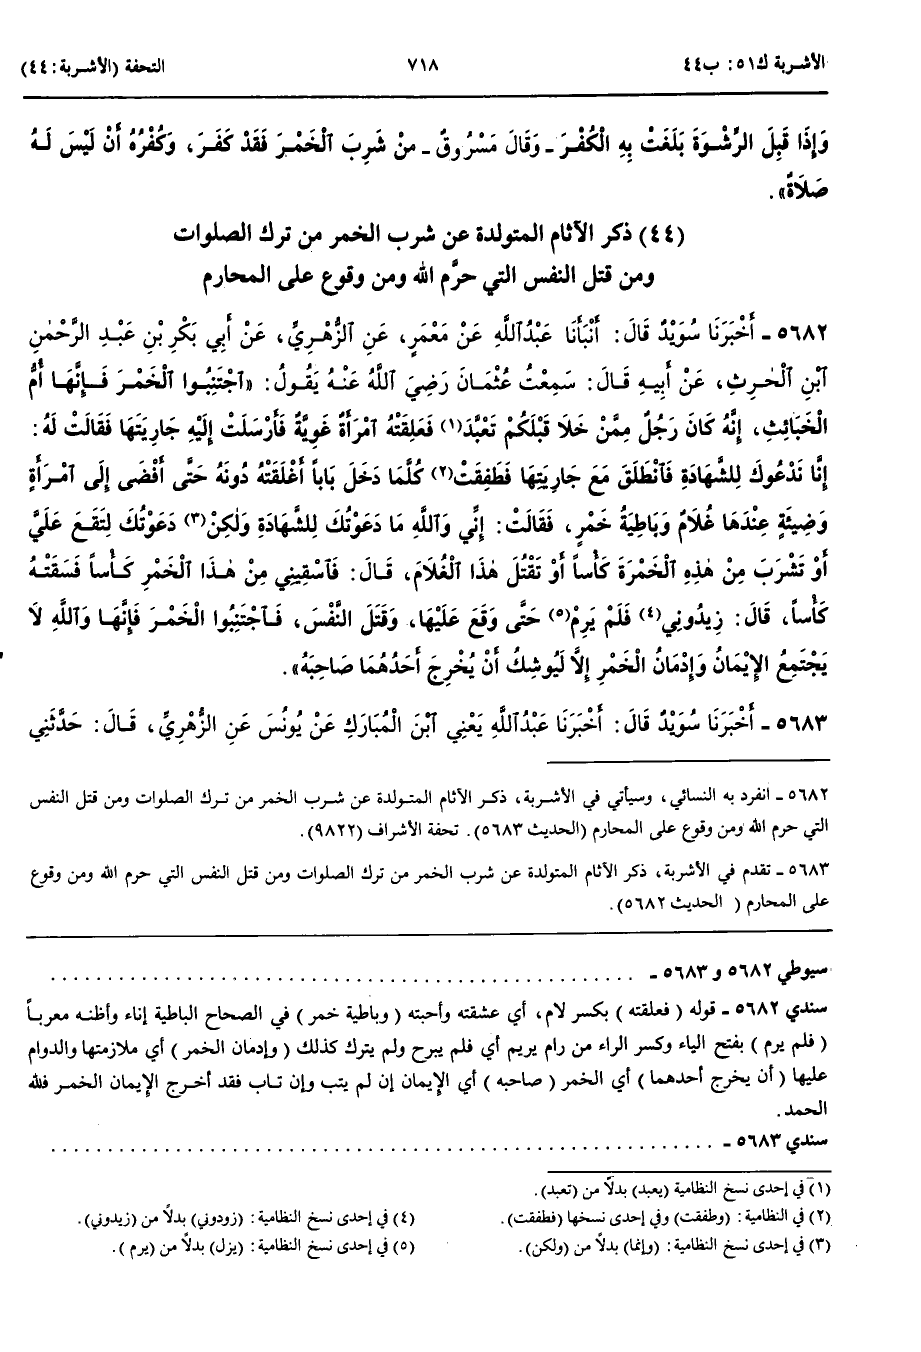 الأشربة ك٥١: ب٤٤ ٧١٨ التحفة (الأشربة: ٤٤)
وَإِذَا قَبِلَ الرُّشْوَةَ بَلَغَتْ بِهِ الْكُفْرَ ـ وَقَالَ مَسْرُوقٌ ـ مَنْ شَرِبَ ٱلْخَمْرَ فَقَدْ كَفَرَ، وَكُفْرُهُ أَنْ لَيْسَ لَهُ
صَلَاةٌ».
(٤٤) ذكر الآثام المتولدة عن شرب الخمر من ترك الصلوات
ومن قتل النفس التي حرَّم الله ومن وقوع على المحارم
٥٦٨٢ ـ أَخْبَرَنَا سُوَيْدٌ قَالَ: أَنْبَأَنَا عَبْدُاللَّهِ عَنْ مَعْمَرٍ، عَنِ ٱلزُّهْرِيِّ، عَنْ أَبِي بَكْرِ بْنِ عَبْدِ الرَّحْمٰنِ
ٱبْنِ ٱلْحٰرِثِ، عَنْ أَبِيهِ قَالَ: سَمِعْتُ عُثْمَانَ رَضِيَ ٱللَّهُ عَنْهُ يَقُولُ: «ٱجْتَنِبُوا ٱلْخَمْرَ فَإِنَّهَا أُمُّ
الْخَبَائِثِ، إِنَّهُ كَانَ رَجُلٌ مِمَّنْ خَلَا قَبْلَكُمْ تَعَبَّدَ(١) فَعَلِقَتْهُ ٱمْرَأَةٌ غَوِيَّةٌ فَأَرْسَلَتْ إِلَيْهِ جَارِيَتَهَا فَقَالَتْ لَهُ:
إِنَّا نَدْعُوكَ لِلشَّهَادَةِ فَٱنْطَلَقَ مَعَ جَارِيَتِهَا فَطَفِقَتْ(٢) كُلَّمَا دَخَلَ بَاباً أَغْلَقَتْهُ دُونَهُ حَتَّى أَفْضَى إِلَى ٱمْرَأَةٍ
وَضِيئَةٍ عِنْدَهَا غُلَامٌ وَبَاطِيَةُ خَمْرٍ، فَقَالَتْ: إِنِّي وَٱللَّهِ مَا دَعَوْتُكَ لِلشَّهَادَةِ وَلٰكِنْ(٣) دَعَوْتُكَ لِتَقَعَ عَلَيَّ
أَوْ تَشْرَبَ مِنْ هٰذِهِ ٱلْخَمْرَةِ كَأْساً أَوْ تَقْتُلَ هٰذَا ٱلْغُلَامَ، قَالَ: فَٱسْقِينِي مِنْ هٰذَا ٱلْخَمْرِ كَأْساً فَسَقَتْهُ
كَأْساً، قَالَ: زِيدُونِي(٤) فَلَمْ يَرِمْ(٥) حَتَّى وَقَعَ عَلَيْهَا، وَقَتَلَ النَّفْسَ، فَٱجْتَنِبُوا الْخَمْرَ فَإِنَّهَا وَٱللَّهِ لَا
يَجْتَمِعُ الإِيْمَانُ وَإِدْمَانُ الْخَمْرِ إِلَّا لَيُوشِكُ أَنْ يُخْرِجَ أَحَدُهُمَا صَاحِبَهُ».
٥٦٨٣ ـ أَخْبَرَنَا سُوَيْدٌ قَالَ: أَخْبَرَنَا عَبْدُاللَّهِ يَعْنِي ٱبْنَ الْمُبَارَكِ عَنْ يُونُسَ عَنِ الزُّهْرِيِّ، قَالَ: حَدَّثَنِي
٥٦٨٢ ـ انفرد به النسائي، وسيأتي في الأشربة، ذكر الآثام المتولدة عن شرب الخمر من ترك الصلوات ومن قتل النفس
التي حرم الله ومن وقوع على المحارم (الحديث ٥٦٨٣). تحفة الأشراف (٩٨٢٢).
٥٦٨٣ ـ تقدم في الأشربة، ذكر الآثام المتولدة عن شرب الخمر من ترك الصلوات ومن قتل النفس التي حرم الله ومن وقوع
على المحارم ( الحديث ٥٦٨٢).
سيوطي ٥٦٨٢ و ٥٦٨٣ ـ ........................................
سندي ٥٦٨٢ ـ قوله ( فعلقته ) بكسر لام، أي عشقته وأحبته ( وباطية خمر ) في الصحاح الباطية إناء وأظنه معرباً
( فلم يرم ) بفتح الياء وكسر الراء من رام يريم أي فلم يبرح ولم يترك كذلك ( وإدمان الخمر ) أي ملازمتها والدوام
عليها ( أن يخرج أحدهما ) أي الخمر ( صاحبه ) أي الإيمان إن لم يتب وإن تاب فقد أخرج الإيمان الخمر فلله
الحمد.
سندي ٥٦٨٣ ـ ........................................
(١) في إحدى نسخ النظامية (يعبد) بدلاً من (تعبد).
(٢) في النظامية: (وطفقت) وفي إحدى نسخها (فطفقت). (٤) في إحدى نسخ النظامية: (زودوني) بدلاً من (زيدوني).
(٣) في إحدى نسخ النظامية: (وإنما) بدلاً من (ولكن). (٥) في إحدى نسخ النظامية: (يزل) بدلاً من (يرم ).